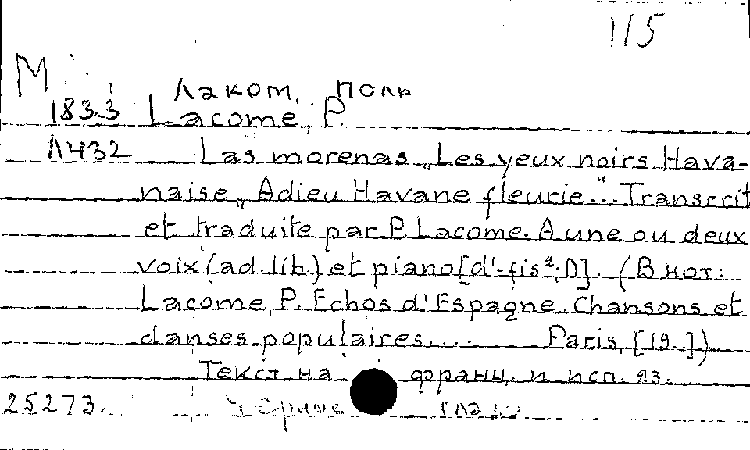 115
М
Лаком, Поль
1833 Lacome, P.
Л432 Las morenas „Les yeux noirs Hava-
naise „Adieu Havane fleurie..." Transcrit
et traduite par P. Lacome. A une ou deux
voix (ad lib) et piano [d'-fis²; D]. (В нот:
Lacome, P. Echos d'Espagne. Chansons et
danses populaires.... Paris, [19..])
Текст на франц. и исп. яз.
25273.